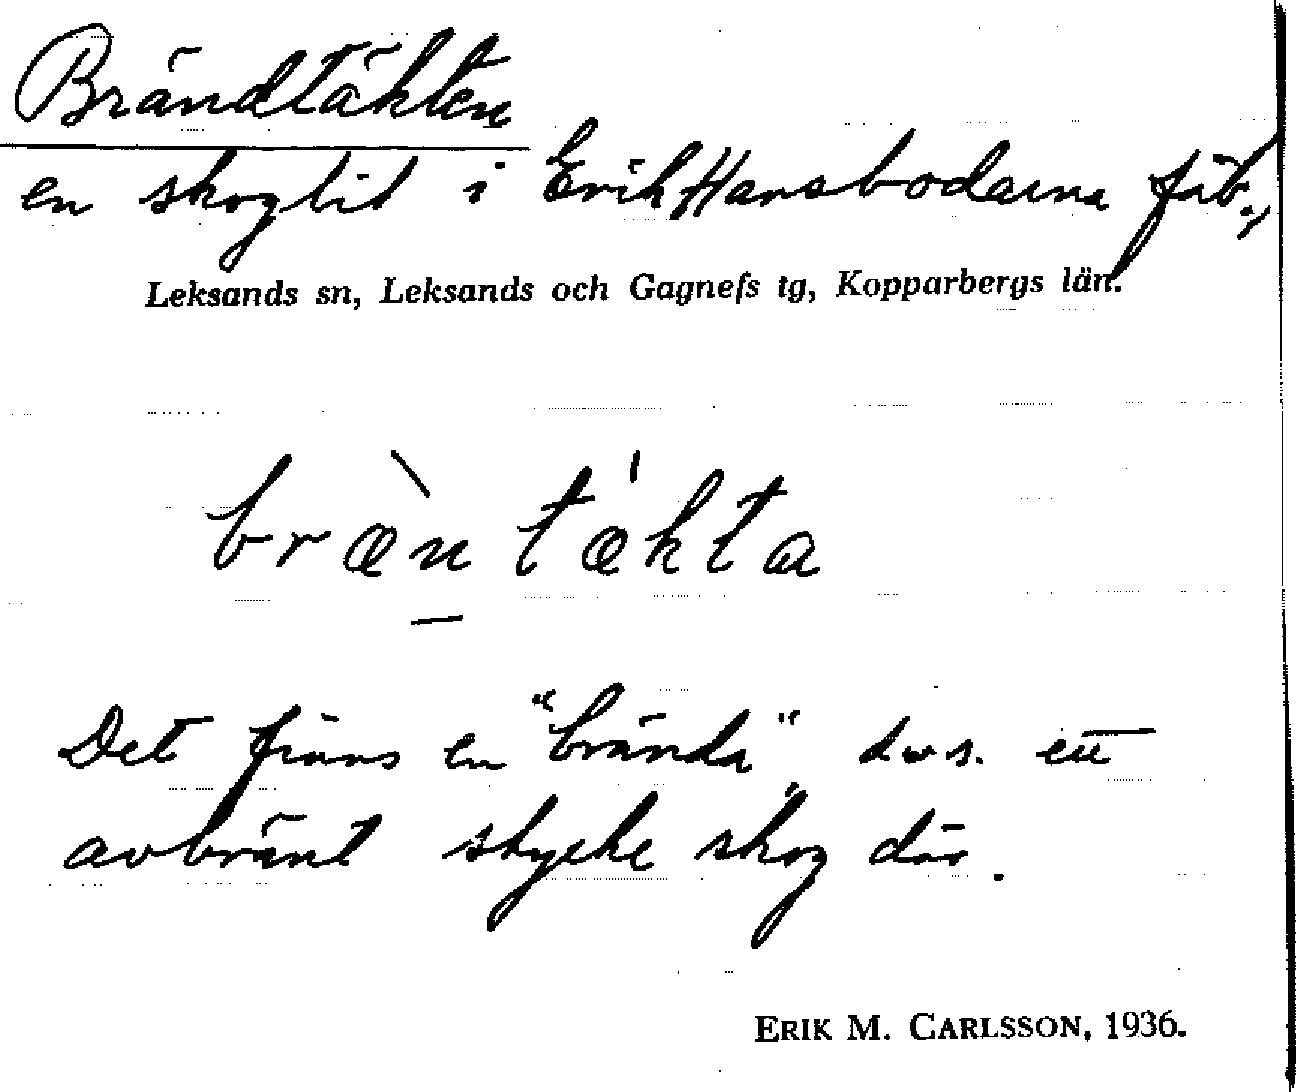 Brändtäkten
en skogbit i Erik Hansbodarna fäb.,
Leksands sn, Leksands och Gagnefs tg, Kopparbergs län.
bræ̀n tǽkta
Det finns en "brända" d.v.s. ett
avbränt stycke skog där.
ERIK M. CARLSSON, 1936.